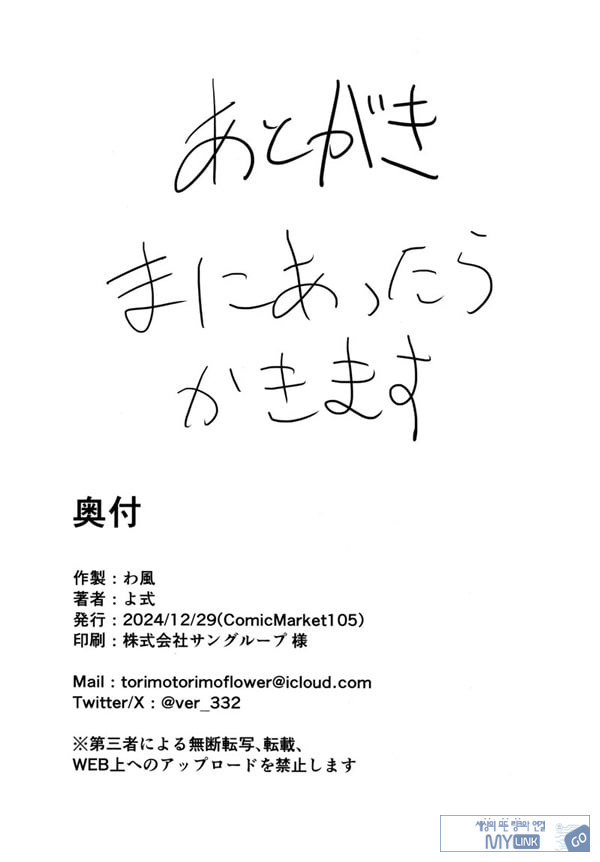 あとがき
まにあったら
かきます
奥付
作製：わ風
著者：よ式
発行：2024/12/29(ComicMarket105)
印刷：株式会社サングループ 様
Mail：torimotorimoflower@icloud.com
Twitter/X：@ver_332
※第三者による無断転写､転載、
WEB上へのアップロードを禁止します
세상의 모든 링크의 연결
MYLINK
GO